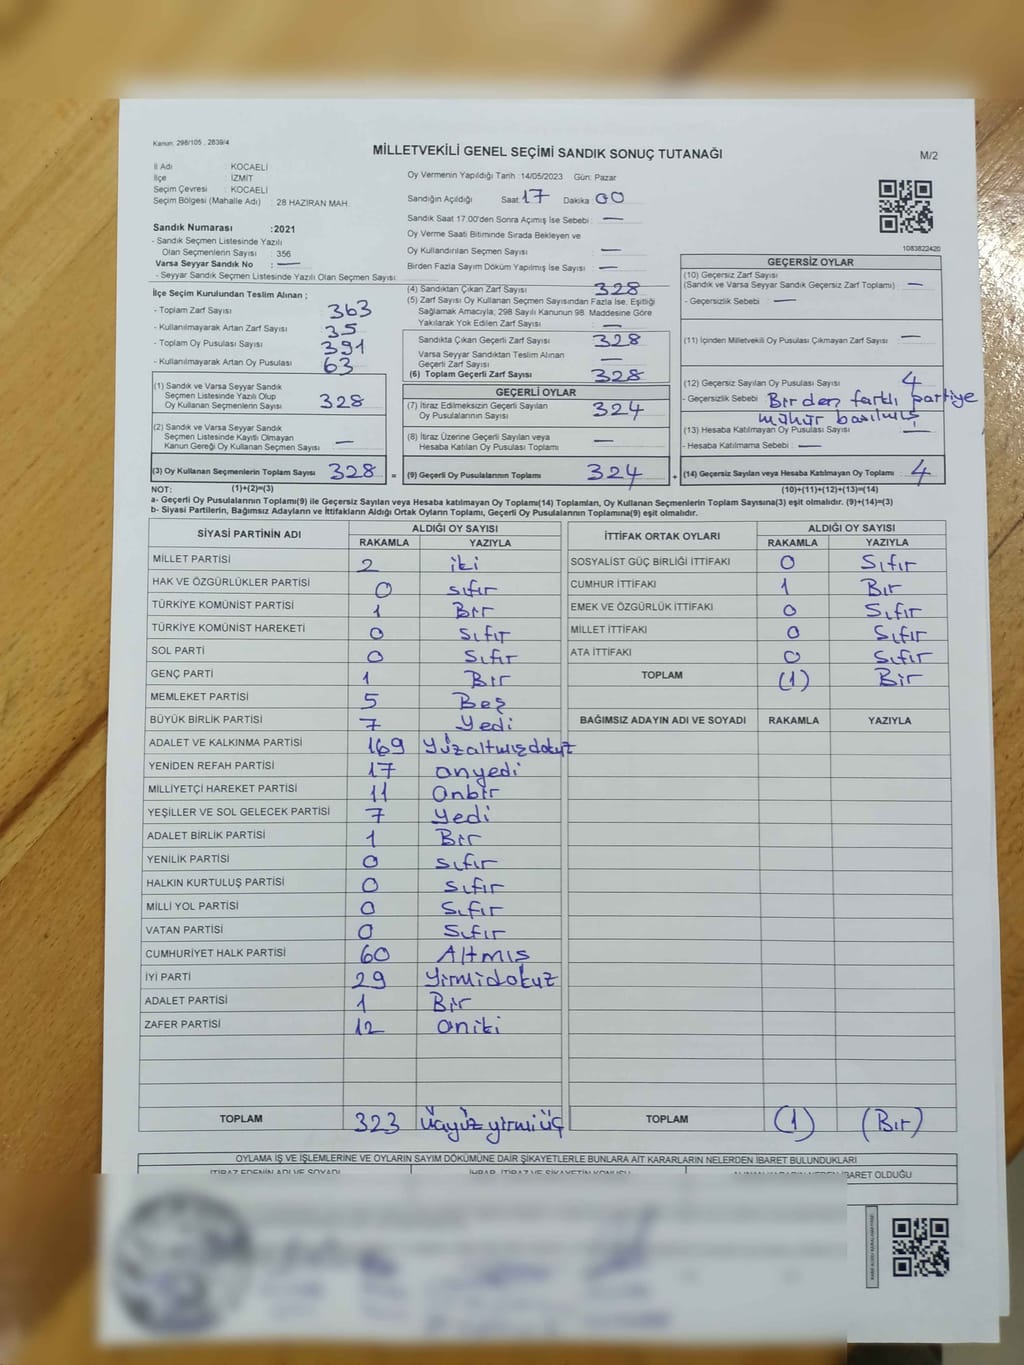 Kanun: 298/105 , 2839/4
MİLLETVEKİLİ GENEL SEÇİMİ SANDIK SONUÇ TUTANAĞI
M/2
İl Adı : KOCAELİ
İlçe : İZMİT
Seçim Çevresi : KOCAELİ
Seçim Bölgesi (Mahalle Adı) : 28 HAZIRAN MAH.
Sandık Numarası :2021
- Sandık Seçmen Listesinde Yazılı
Olan Seçmenlerin Sayısı : 356
Varsa Seyyar Sandık No : —
- Seyyar Sandık Seçmen Listesinde Yazılı Olan Seçmen Sayısı:
Oy Vermenin Yapıldığı Tarih :14/05/2023 Gün: Pazar
Sandığın Açıldığı Saat 17 Dakika 00
Sandık Saat 17.00'den Sonra Açımış İse Sebebi : —
Oy Verme Saati Bitiminde Sırada Bekleyen ve
Oy Kullandırılan Seçmen Sayısı : —
Birden Fazla Sayım Döküm Yapılmış İse Sayısı : —
1083822420
İlçe Seçim Kurulundan Teslim Alınan ;
- Toplam Zarf Sayısı : 363
- Kullanılmayarak Artan Zarf Sayısı : 35
- Toplam Oy Pusulası Sayısı : 391
- Kullanılmayarak Artan Oy Pusulası : 63
(1) Sandık ve Varsa Seyyar Sandık
Seçmen Listesinde Yazılı Olup
Oy Kullanan Seçmenlerin Sayısı : 328
(2) Sandık ve Varsa Seyyar Sandık
Seçmen Listesinde Kayıtlı Olmayan
Kanun Gereği Oy Kullanan Seçmen Sayısı : —
(3) Oy Kullanan Seçmenlerin Toplam Sayısı : 328 =
(4) Sandıktan Çıkan Zarf Sayısı : 328
(5) Zarf Sayısı Oy Kullanan Seçmen Sayısından Fazla İse, Eşitliği
Sağlamak Amacıyla; 298 Sayılı Kanunun 98. Maddesine Göre
Yakılarak Yok Edilen Zarf Sayısı : —
Sandıkta Çıkan Geçerli Zarf Sayısı : 328
Varsa Seyyar Sandıktan Teslim Alınan
Geçerli Zarf Sayısı : —
(6) Toplam Geçerli Zarf Sayısı : 328
GEÇERLİ OYLAR
(7) İtiraz Edilmeksizin Geçerli Sayılan
Oy Pusulalarının Sayısı : 324
(8) İtiraz Üzerine Geçerli Sayılan veya
Hesaba Katılan Oy Pusulası Toplamı : —
(9) Geçerli Oy Pusulalarının Toplamı : 324 +
GEÇERSİZ OYLAR
(10) Geçersiz Zarf Sayısı
(Sandık ve Varsa Seyyar Sandık Geçersiz Zarf Toplamı) : —
- Geçersizlik Sebebi : —
(11) İçinden Milletvekili Oy Pusulası Çıkmayan Zarf Sayısı : —
(12) Geçersiz Sayılan Oy Pusulası Sayısı : 4
- Geçersizlik Sebebi : Birden farklı partiye
mühür basılmış
(13) Hesaba Katılmayan Oy Pusulası Sayısı : —
- Hesaba Katılmama Sebebi : —
(14) Geçersiz Sayılan veya Hesaba Katılmayan Oy Toplamı : 4
NOT: (1)+(2)=(3) (10)+(11)+(12)+(13)=(14)
a- Geçerli Oy Pusulalarının Toplamı(9) ile Geçersiz Sayılan veya Hesaba katılmayan Oy Toplamı(14) Toplamları, Oy Kullanan Seçmenlerin Toplam Sayısına(3) eşit olmalıdır. (9)+(14)=(3)
b- Siyasi Partilerin, Bağımsız Adayların ve İttifakların Aldığı Ortak Oyların Toplamı, Geçerli Oy Pusulalarının Toplamına(9) eşit olmalıdır.
SİYASİ PARTİNİN ADI ALDIĞI OY SAYISI
RAKAMLA YAZIYLA
MİLLET PARTİSİ 2 iki
HAK VE ÖZGÜRLÜKLER PARTİSİ 0 sıfır
TÜRKİYE KOMÜNİST PARTİSİ 1 Bir
TÜRKİYE KOMÜNİST HAREKETİ 0 Sıfır
SOL PARTİ 0 Sıfır
GENÇ PARTİ 1 Bir
MEMLEKET PARTİSİ 5 Beş
BÜYÜK BİRLİK PARTİSİ 7 Yedi
ADALET VE KALKINMA PARTİSİ 169 Yüzaltmışdokuz
YENİDEN REFAH PARTİSİ 17 onyedi
MİLLİYETÇİ HAREKET PARTİSİ 11 Onbir
YEŞİLLER VE SOL GELECEK PARTİSİ 7 Yedi
ADALET BİRLİK PARTİSİ 1 Bir
YENİLİK PARTİSİ 0 sıfır
HALKIN KURTULUŞ PARTİSİ 0 sıfır
MİLLİ YOL PARTİSİ 0 Sıfır
VATAN PARTİSİ 0 Sıfır
CUMHURİYET HALK PARTİSİ 60 Altmış
İYİ PARTİ 29 Yirmidokuz
ADALET PARTİSİ 1 Bir
ZAFER PARTİSİ 12 oniki
TOPLAM 323 üçyüzyirmiüç
İTTİFAK ORTAK OYLARI ALDIĞI OY SAYISI
RAKAMLA YAZIYLA
SOSYALİST GÜÇ BİRLİĞİ İTTİFAKI 0 Sıfır
CUMHUR İTTİFAKI 1 Bir
EMEK VE ÖZGÜRLÜK İTTİFAKI 0 Sıfır
MİLLET İTTİFAKI 0 Sıfır
ATA İTTİFAKI 0 Sıfır
TOPLAM (1) Bir
BAĞIMSIZ ADAYIN ADI VE SOYADI RAKAMLA YAZIYLA
TOPLAM (1) (Bir)
OYLAMA İŞ VE İŞLEMLERİNE VE OYLARIN SAYIM DÖKÜMÜNE DAİR ŞİKAYETLERLE BUNLARA AİT KARARLARIN NELERDEN İBARET BULUNDUKLARI
İTİRAZ EDENİN ADI VE SOYADI İHBAR, İTİRAZ VE ŞİKAYETİN KONUSU İBARET OLDUĞU